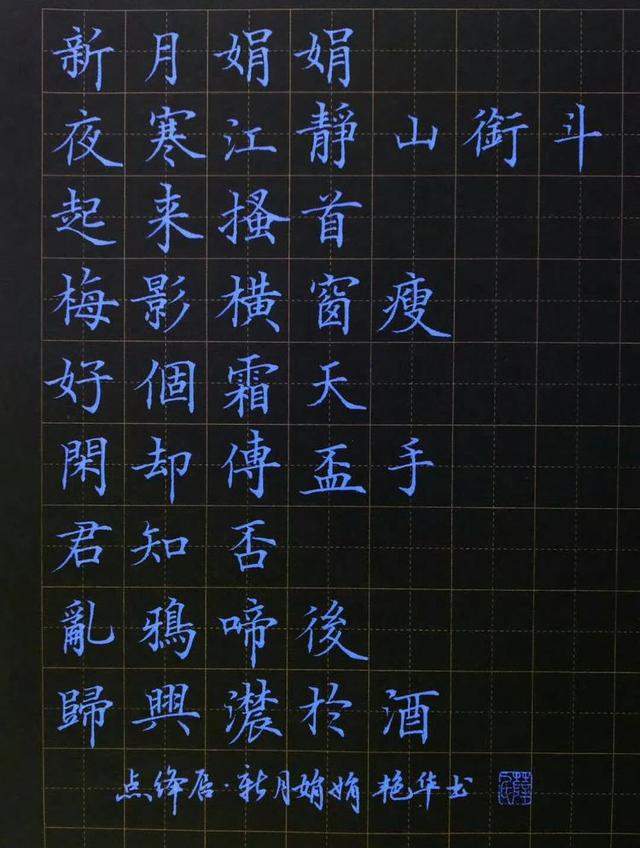 新月娟娟
夜寒江靜山銜斗
起来搔首
梅影橫窗瘦
好個霜天
閑却傳盃手
君知否
亂鴉啼後
歸興濃於酒
点绛唇·新月娟娟 艳华书